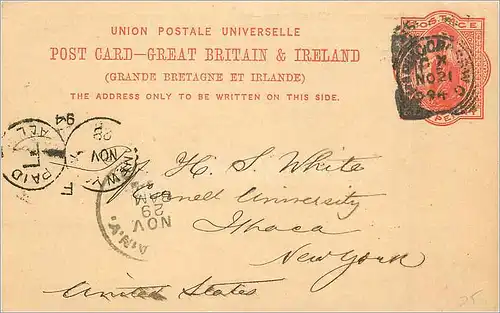 UNION POSTALE UNIVERSELLE
POST CARD—GREAT BRITAIN & IRELAND
(GRANDE BRETAGNE ET IRLANDE)
THE ADDRESS ONLY TO BE WRITTEN ON THIS SIDE.
POSTAGE
NO 21
94
H. S. White
Cornell University
Ithaca
New York
United States
PAID
ALL
94
NEW
NOV
NOV
29
AM
N.Y.